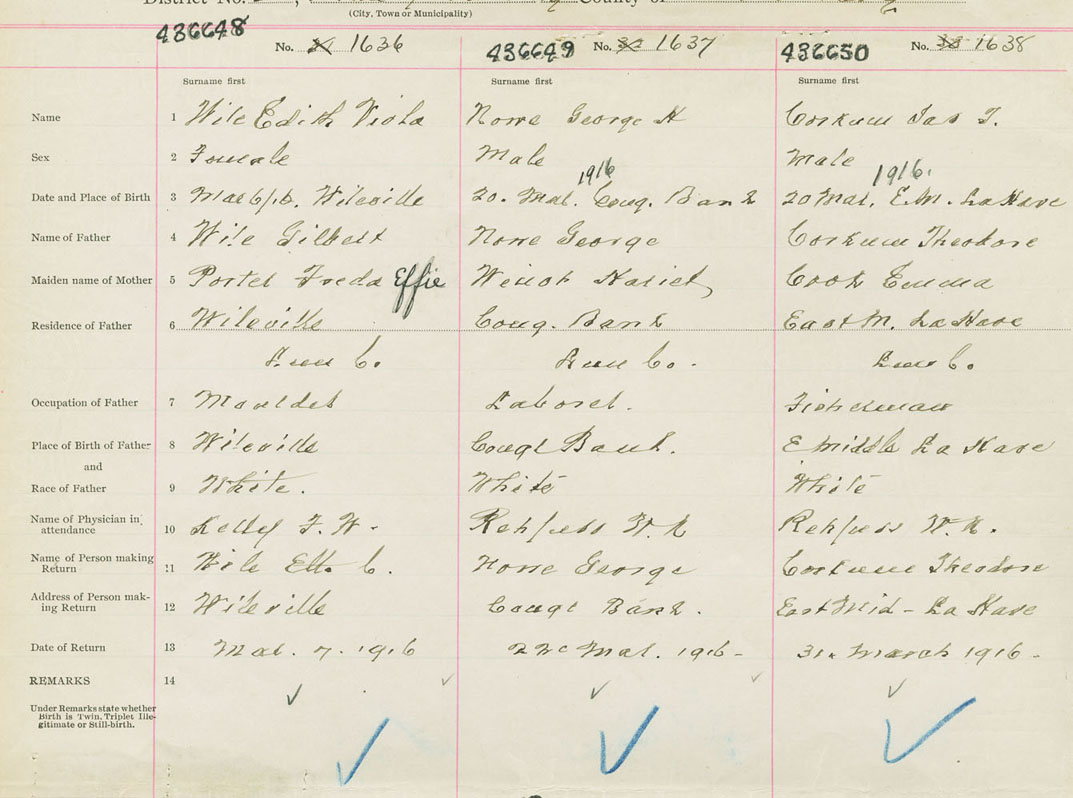 District No. County of
(City, Town or Municipality)
436648 No. 31 1636 436649 No. 32 1637 436650 No. 33 1638
Surname first Surname first Surname first
Name 1 Wile Edith Viola George H Corkum Jas T.
Sex 2 Female Male Male
1916 1916.
Date and Place of Birth 3 Mar 6/16. Wileville 20. Mar. Conq. Bank 20 Mar. E.M. LaHave
Name of Father 4 Wile Gilbert George Corkum Theodore
Maiden name of Mother 5 Porter Freda Effie Hariet Cook Emma
Residence of Father 6 Wileville Conq. Bank East M. LaHave
Lun Co. Lun Co. Lun Co.
Occupation of Father 7 Moulder Laborer. Fisherman
Place of Birth of Father 8 Wileville Conqt Bank. E Middle La Have
and
Race of Father 9 White. White White
Name of Physician in attendance 10 Kelley F. W. Rehfuss W. N. Rehfuss W. N.
Name of Person making Return 11 Wile Etta C. George Corkum Theodore
Address of Person making Return 12 Wileville Conqt Bank. East Mid - La Have
Date of Return 13 Mar. 7. 1916 Mar. 1916 - 31. March 1916 -
REMARKS 14
Under Remarks state whether
Birth is Twin, Triplet Ille-
gitimate or Still-birth.